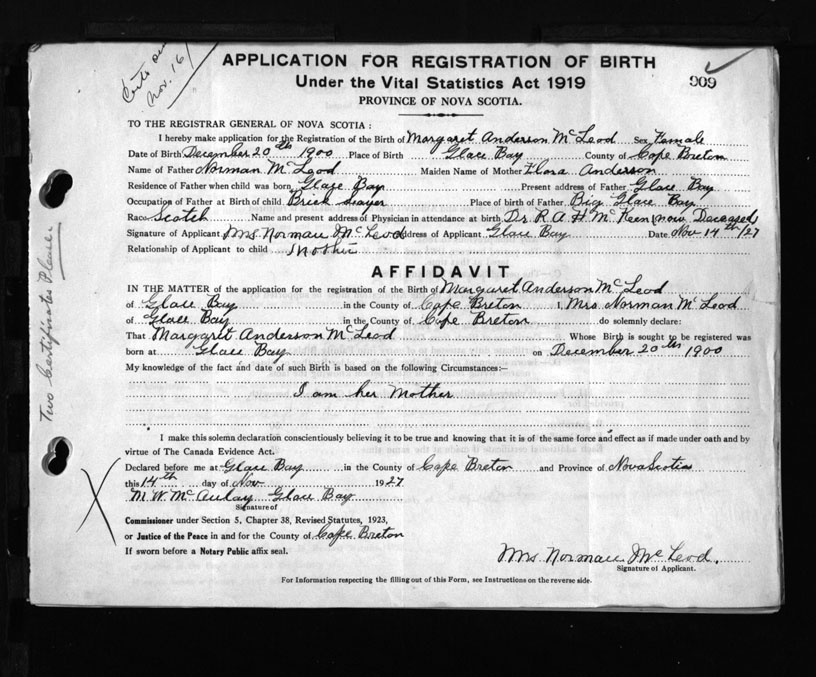 Certs sent
Nov. 16/
APPLICATION FOR REGISTRATION OF BIRTH
Under the Vital Statistics Act 1919
909
PROVINCE OF NOVA SCOTIA.
TO THE REGISTRAR GENERAL OF NOVA SCOTIA:
I hereby make application for the Registration of the Birth of Margaret Anderson McLeod Sex Female
Date of Birth December 20th 1900 Place of Birth Glace Bay County of Cape Breton
Name of Father Norman McLeod Maiden Name of Mother Flora Anderson
Residence of Father when child was born, Glace Bay Present address of Father Glace Bay
Occupation of Father at Birth of child. Brick Layer Place of birth of Father. Big Glace Bay
Race Scotch Name and present address of Physician in attendance at birth Dr. R. A. H. McKeen (now Deceased)
Signature of Applicant Mrs Norman McLeod Address of Applicant Glace Bay Date Nov 14th/27
Relationship of Applicant to child Mother
AFFIDAVIT
IN THE MATTER of the application for the registration of the Birth of Margaret Anderson McLeod
of Glace Bay in the County of Cape Breton I, Mrs Norman McLeod
of Glace Bay in the County of Cape Breton do solemnly declare:
That Margaret Anderson McLeod Whose Birth is sought to be registered was
born at Glace Bay on December 20th 1900
My knowledge of the fact and date of such Birth is based on the following Circumstances:—
I am her Mother
I make this solemn declaration conscientiously believing it to be true and knowing that it is of the same force and effect as if made under oath and by
virtue of The Canada Evidence Act.
Declared before me at Glace Bay in the County of Cape Breton and Province of Nova Scotia
this 14th day of Nov 1927
M. W. McAulay Glace Bay
Signature of
Commissioner under Section 5, Chapter 38, Revised Statutes, 1923,
or Justice of the Peace in and for the County of Cape Breton
If sworn before a Notary Public affix seal.
Mrs Norman McLeod.
Signature of Applicant.
For Information respecting the filling out of this Form, see Instructions on the reverse side.
Two Certificates Please.